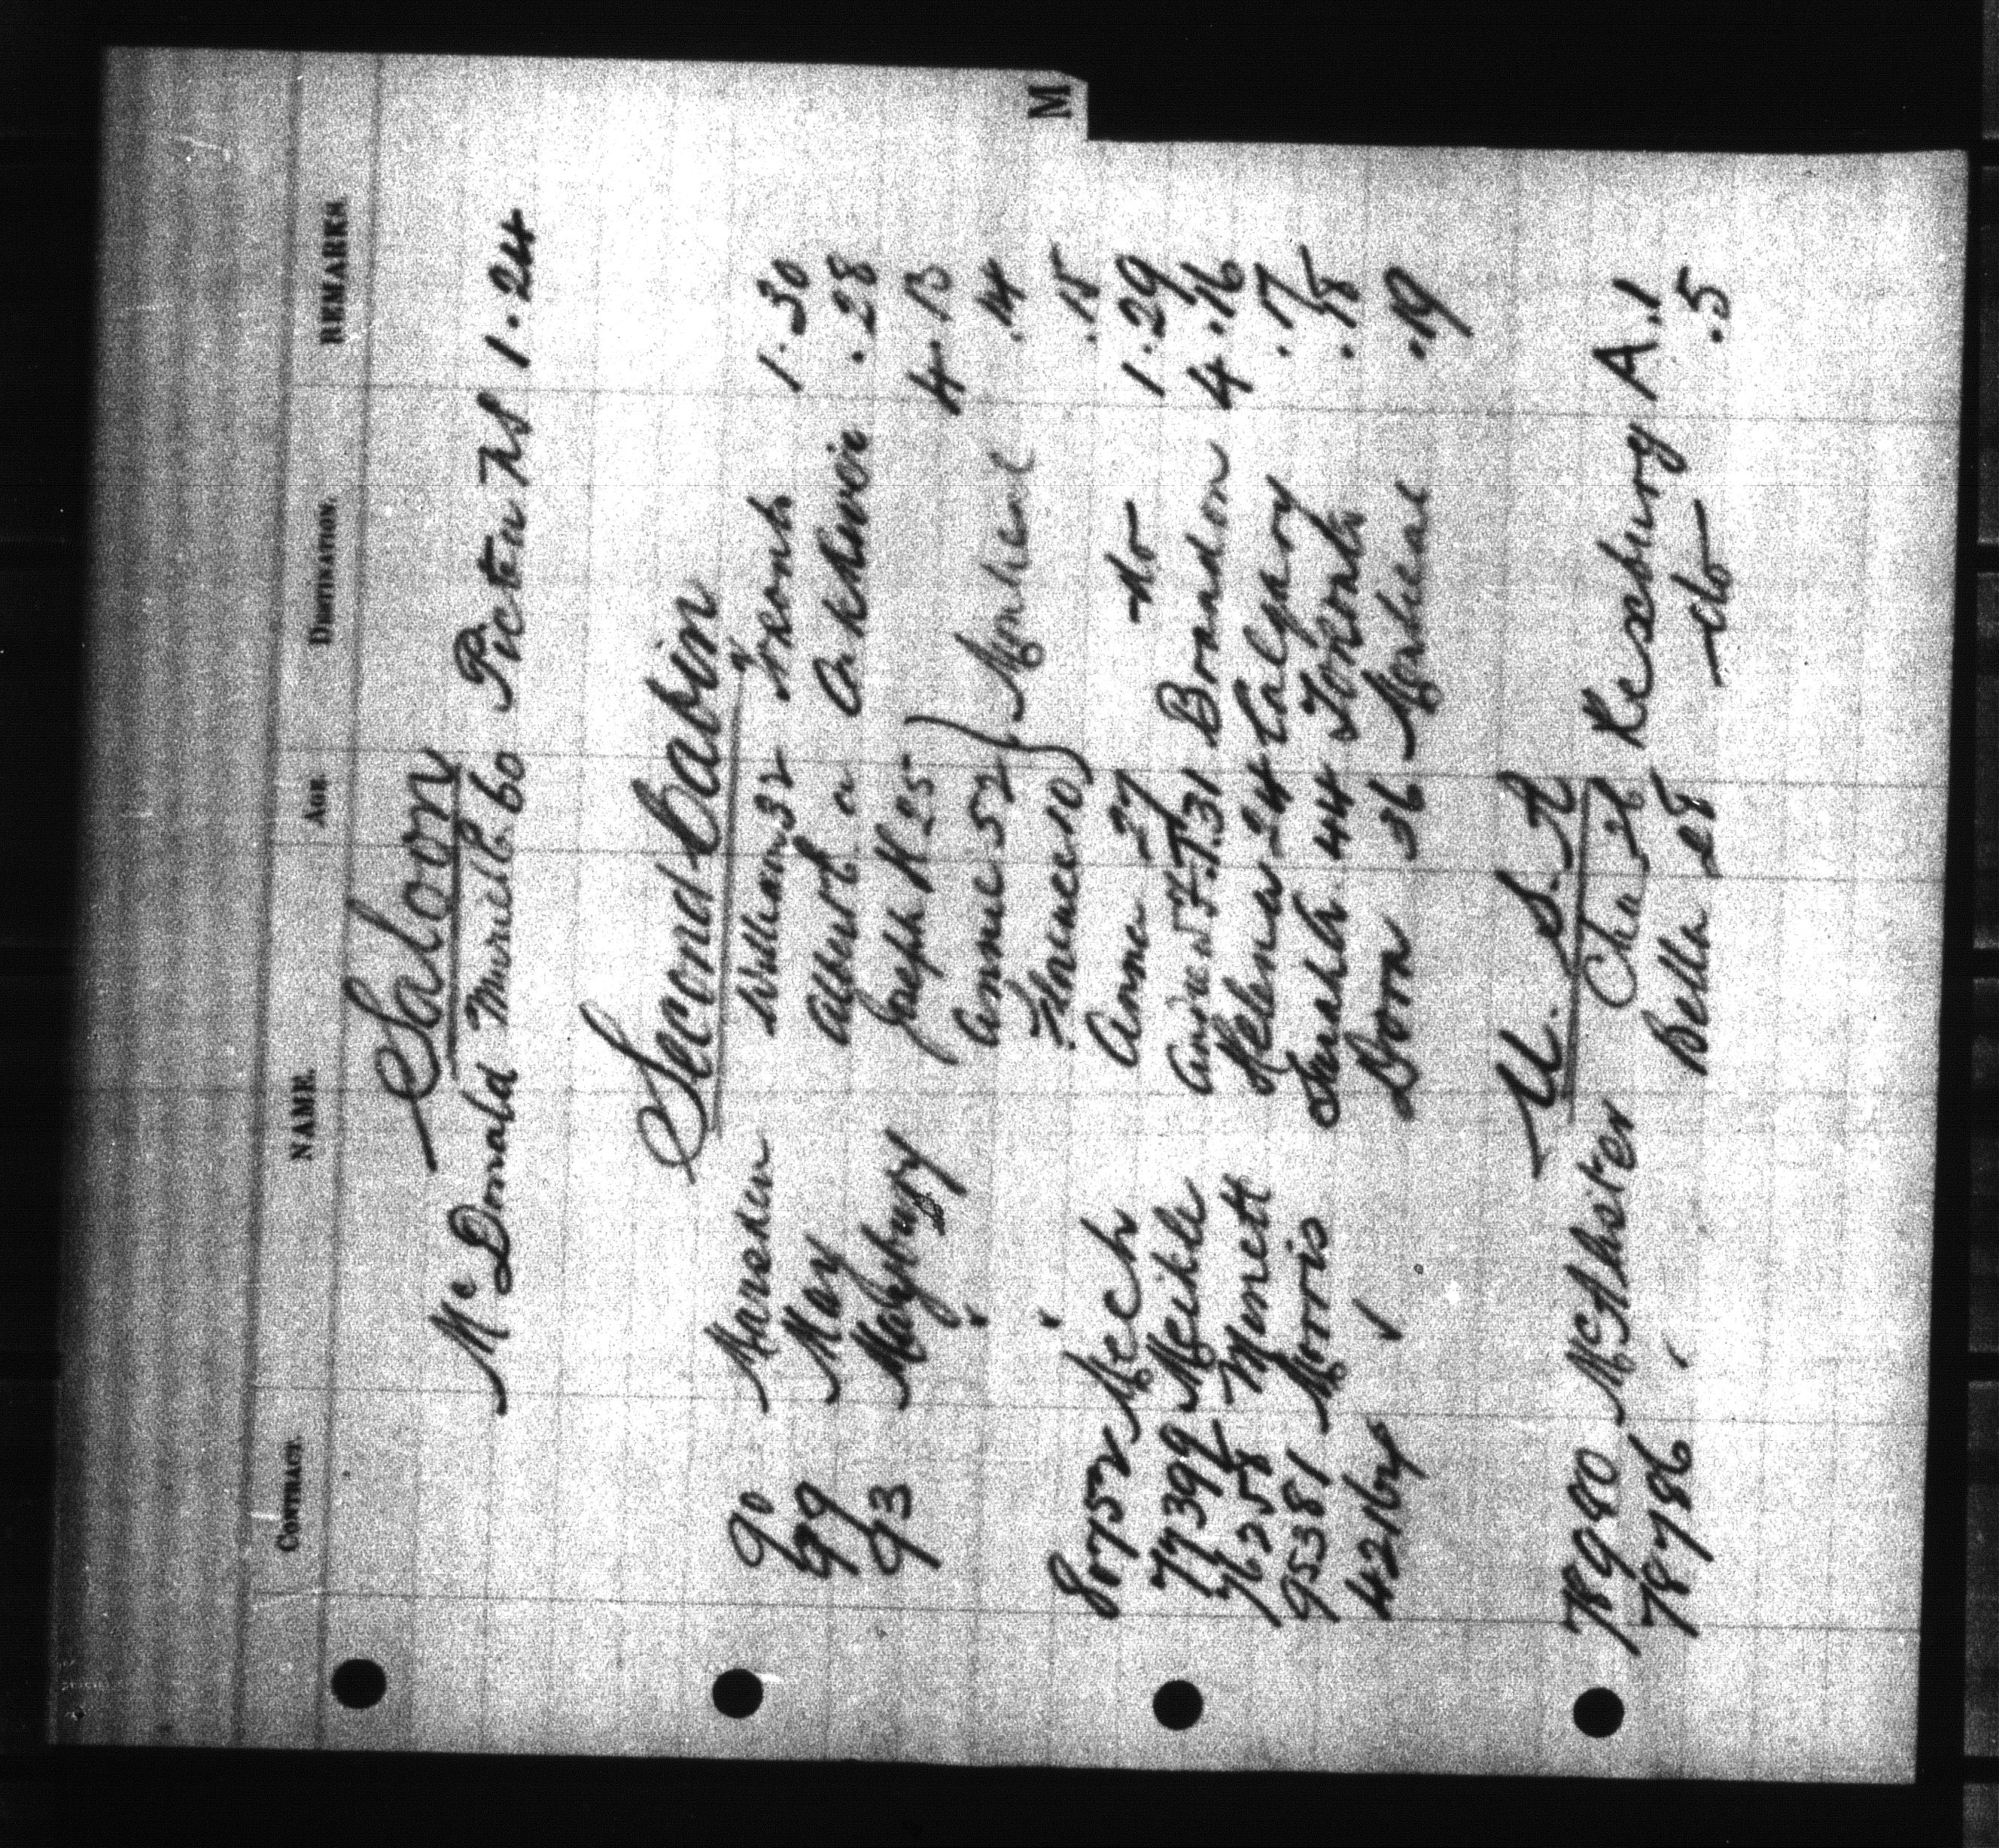 M
CONTRACT. NAME. AGE DESTINATION. REMARKS.
Saloon
McDonald Muriel C. 60 Pictou NS 1.24
Second Cabin
90 Marsden William 32 Toronto 1.30
99 May Albert Arkhive .28
93 Maybury Joseph H 25 4.13
" Annie 52 } Montreal .14
" Florence 10 .15
80752 Mech Anna 27 do 1.29
77399 Meikle Andrew F.T. 31 Brandon 4.16
76258 Minett Helena 24 Calgary .17
95381 Morris Sarah A. 44 Toronto .18
42164 " Dora 36 Montreal .19
U. S. A
78940 McAlister Chas 26 Kescburg A.1
78786 " Bella 25 do .5